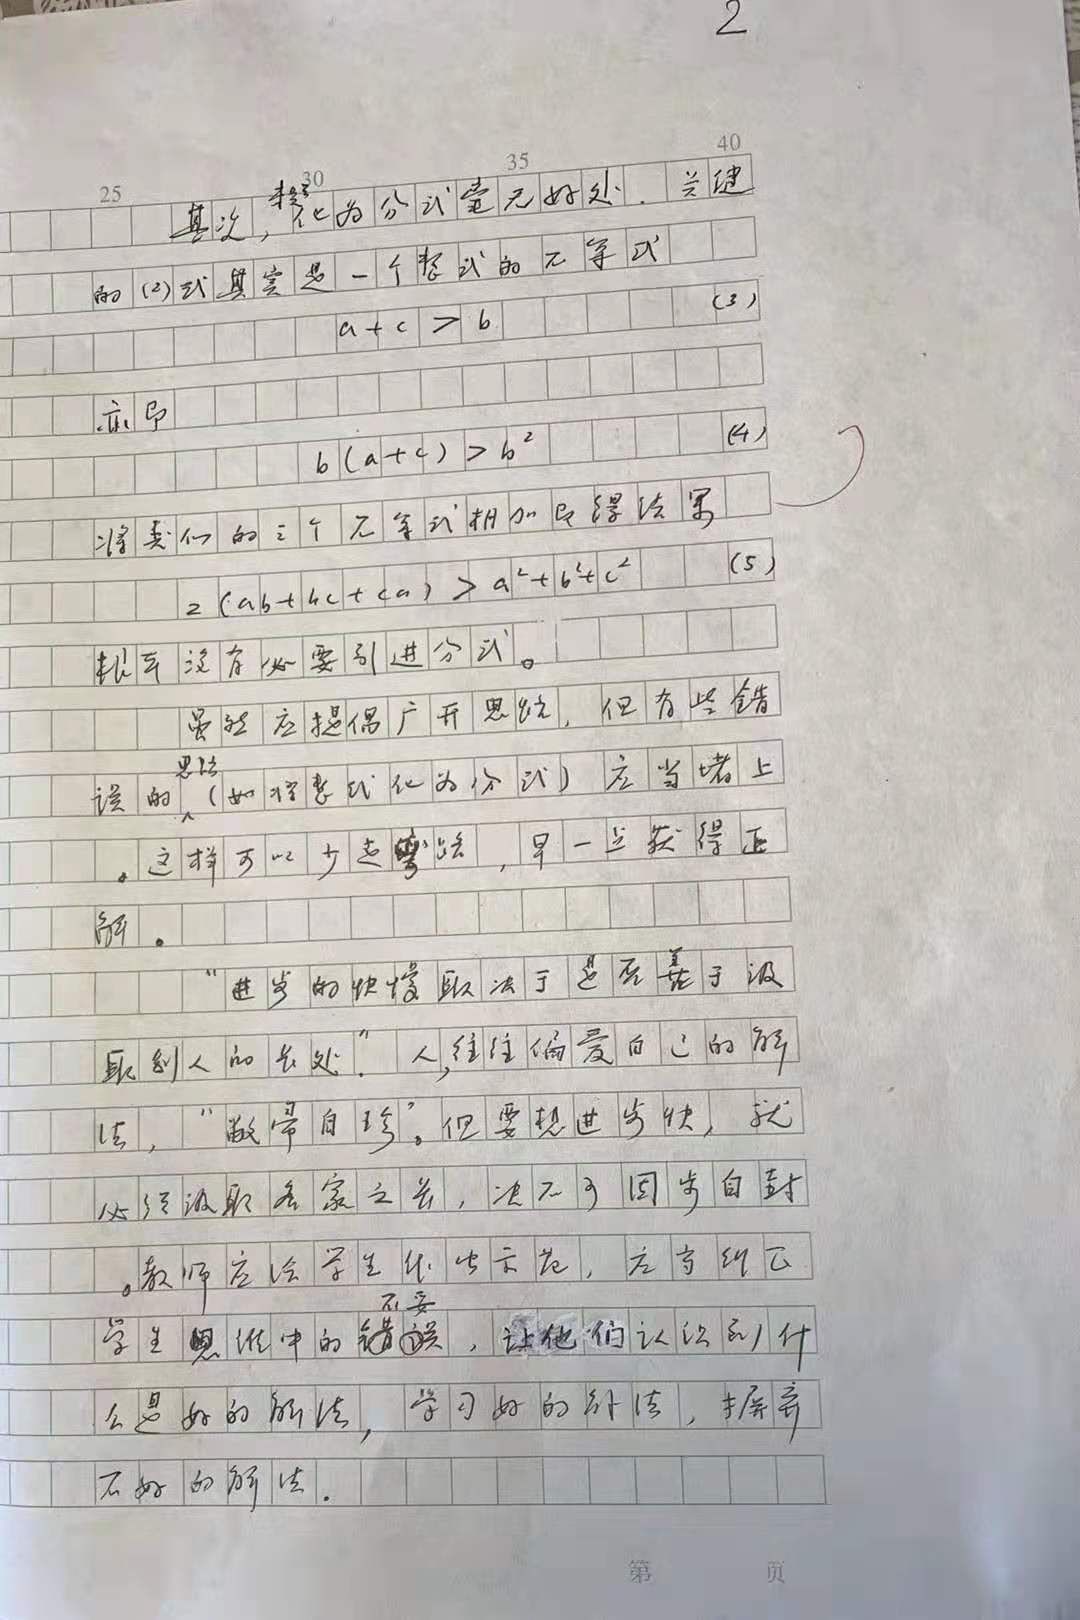 2
25 30 35 40
其次,化为分式毫无好处.关键
的(2)式其实是一个整式的不等式
a+c>b (3)
亦即
b(a+c)>b² (4)
将类似的三个不等式相加即得结果
2(ab+bc+ca)>a²+b²+c² (5)
根本没有必要引进分式。
虽然应提倡广开思路,但有些错
误的思路(如将整式化为分式)应当堵上
。这样可以少走弯路,早一点获得正
解。
“进步的快慢取决于是否善于汲
取别人的长处.”人,往往偏爱自己的解
法,“敝帚自珍”。但要想进步快,就
必须汲取各家之长,决不可固步自封
。教师应给学生作出示范,应当纠正
学生思维中的不妥,让他们认识到什
么是好的解法,学习好的解法,摒弃
不好的解法.
第 页